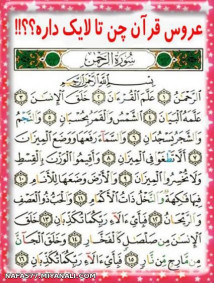 عروس قرآن چن تا لایک داره؟؟!!
سورة الرحمن
بسم الله الرحمن الرحيم
الرَّحْمَٰنُ ١ عَلَّمَ الْقُرْءَانَ ٢ خَلَقَ الْإِنسَٰنَ ٣
عَلَّمَهُ الْبَيَانَ ٤ الشَّمْسُ وَالْقَمَرُ بِحُسْبَانٍ ٥ وَالنَّجْمُ
وَالشَّجَرُ يَسْجُدَانِ ٦ وَالسَّمَاءَ رَفَعَهَا وَوَضَعَ الْمِيزَانَ
٧ أَلَّا تَطْغَوْا فِي الْمِيزَانِ ٨ وَأَقِيمُوا الْوَزْنَ بِالْقِسْطِ
وَلَا تُخْسِرُوا الْمِيزَانَ ٩ وَالْأَرْضَ وَضَعَهَا لِلْأَنَامِ ١٠
فِيهَا فَٰكِهَةٌ وَالنَّخْلُ ذَاتُ الْأَكْمَامِ ١١ وَالْحَبُّ ذُو الْعَصْفِ
وَالرَّيْحَانُ ١٢ فَبِأَيِّ ءَالَاءِ رَبِّكُمَا تُكَذِّبَانِ ١٣ خَلَقَ
الْإِنسَٰنَ مِن صَلْصَٰلٍ كَالْفَخَّارِ ١٤ وَخَلَقَ الْجَانَّ
مِن مَّارِجٍ مِّن نَّارٍ ١٥ فَبِأَيِّ ءَالَاءِ رَبِّكُمَا تُكَذِّبَانِ ١٦
NAFAS77.MIYANALI.COM